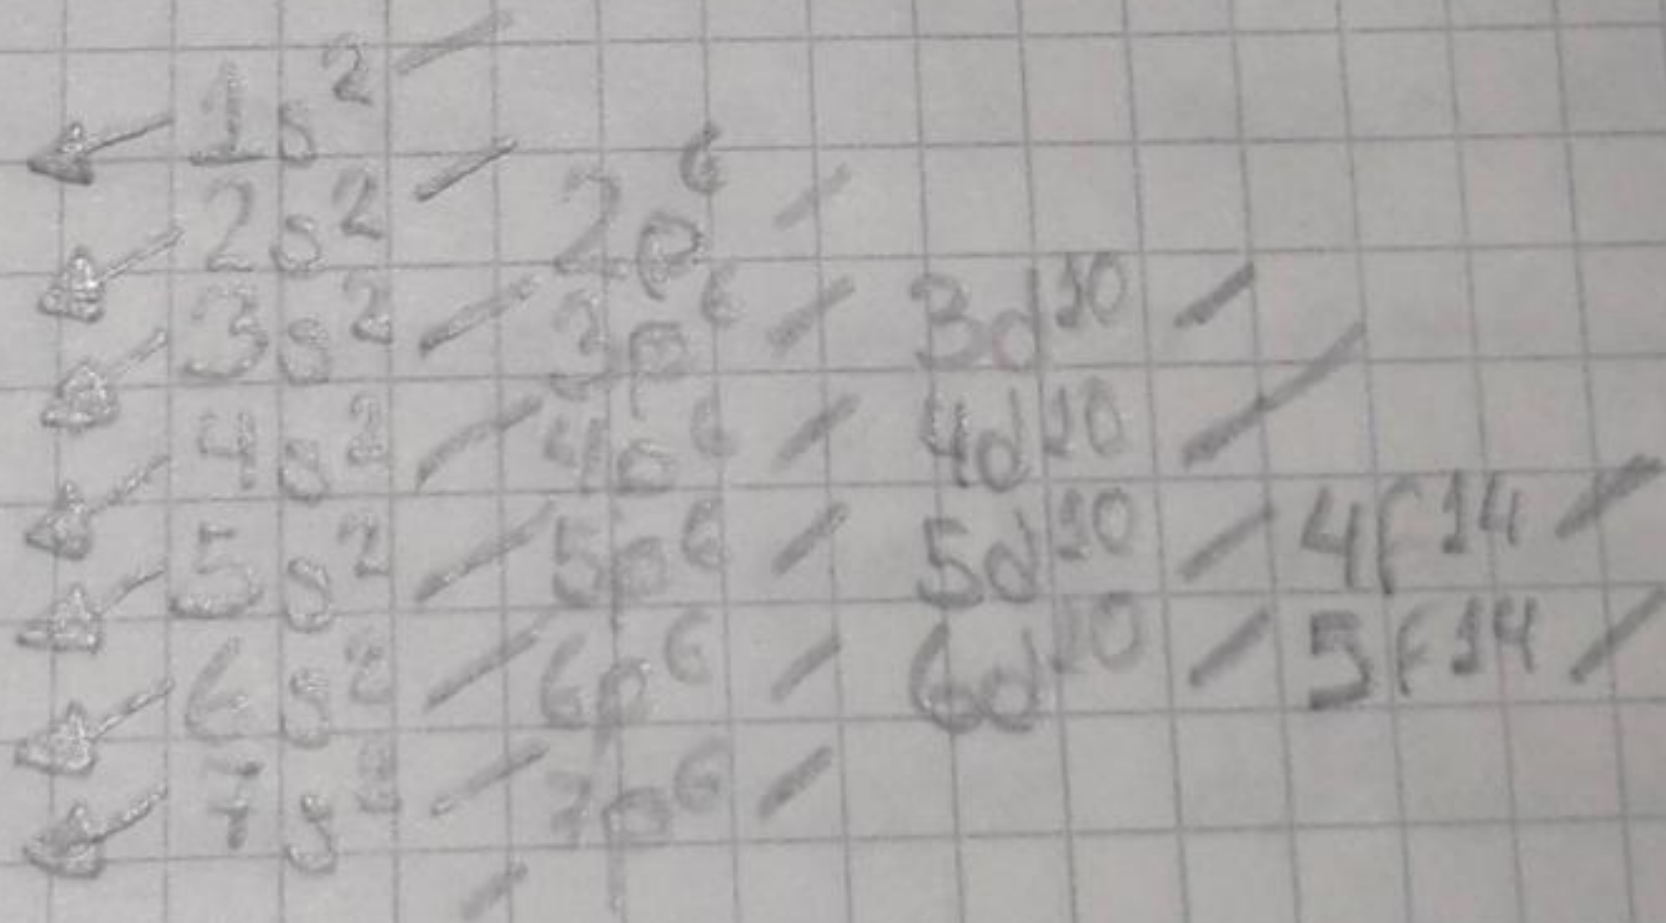 1s²
2s² 2p⁶
3s² 3p⁶ 3d¹⁰
4s² 4p⁶ 4d¹⁰
5s² 5p⁶ 5d¹⁰ 4f¹⁴
6s² 6p⁶ 6d¹⁰ 5f¹⁴
7s² 7p⁶